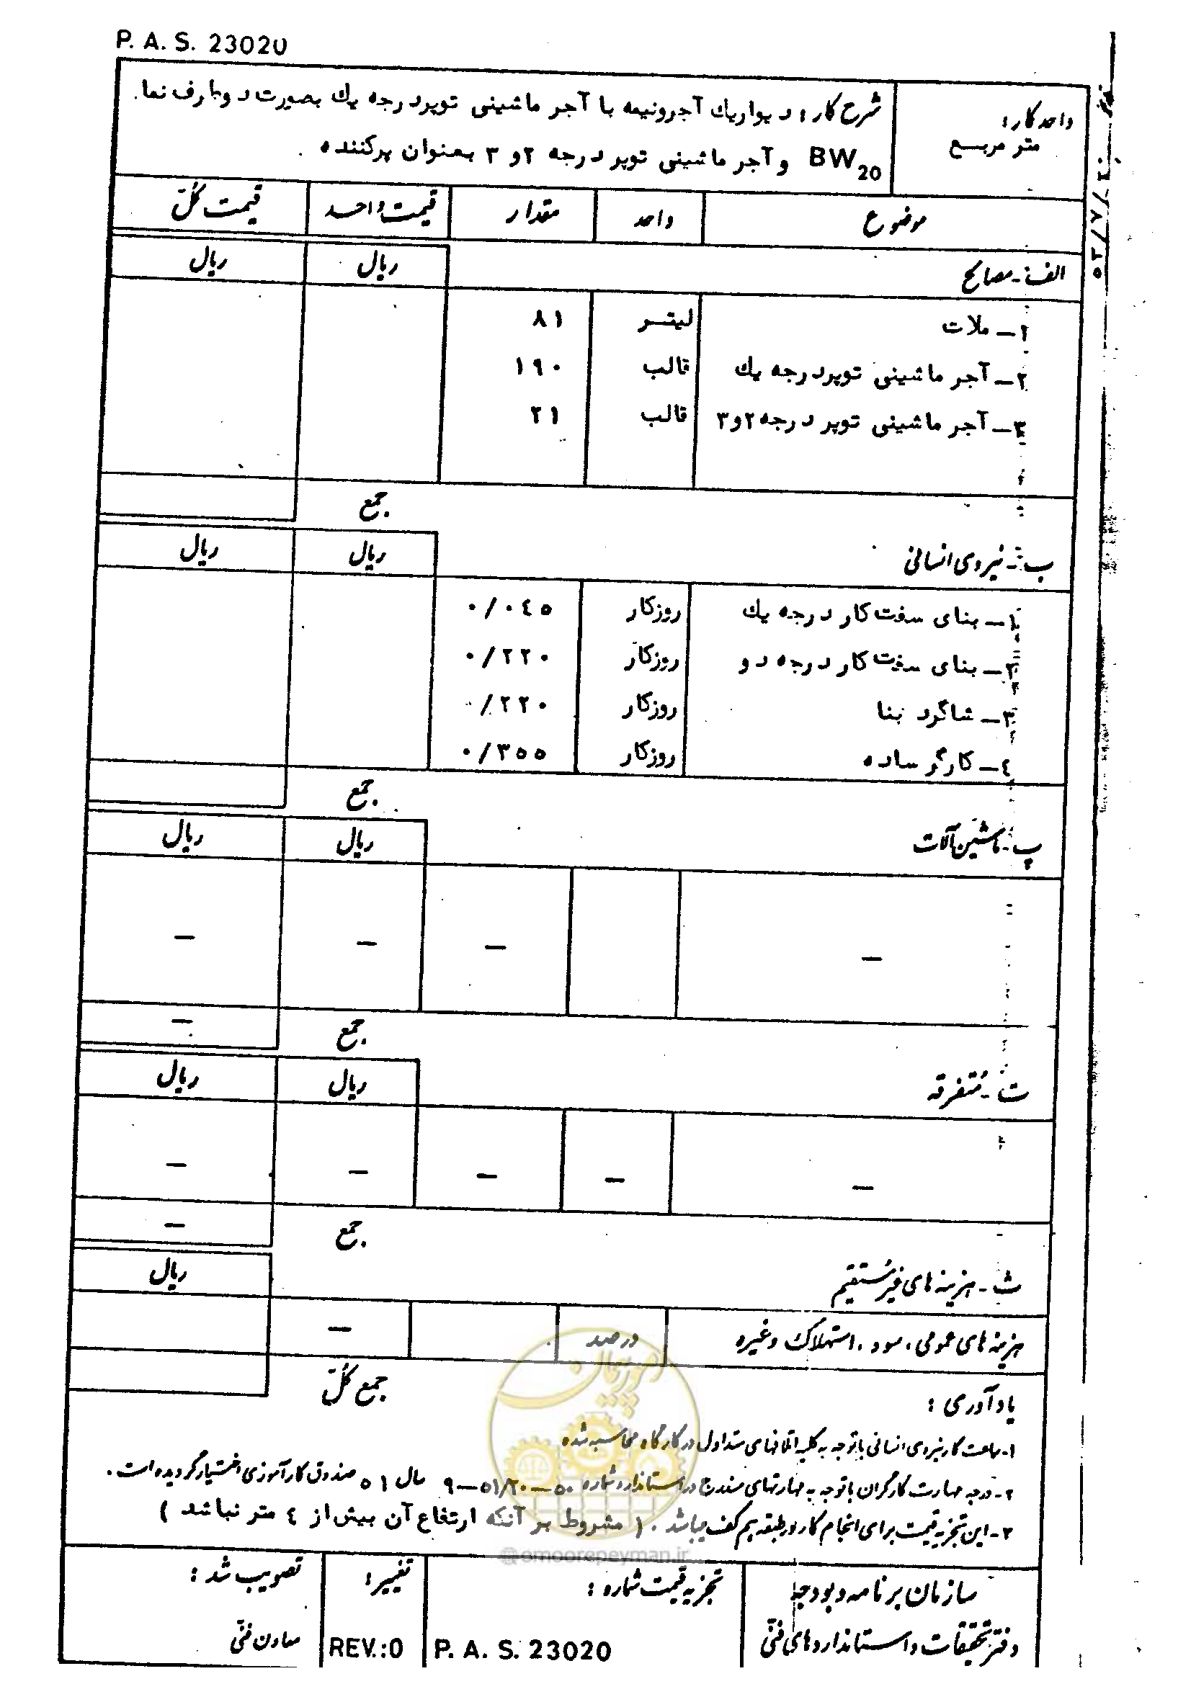 P. A. S. 23020
واحد کار :
متر مربع
شرح کار : دیوار یك آجرونیمه با آجر ماشینی توپر درجه یك بصورت دو طرف نما.
BW20 و آجر ماشینی توپر درجه ۲و ۳ بعنوان پرکننده .
موضوع واحد مقدار قیمت واحد قیمت کلّ
الف - مصالح ریال ریال
۱– ملات لیتـر ۸۱
۲– آجر ماشینی توپر درجه یك قالب ۱۹۰
۳– آجر ماشینی توپر درجه ۲و۳ قالب ۲۱
جمع
ب - نیروی انسانی ریال ریال
۱– بنای سفت کار درجه یك روزکار ۰/۰٤٥
۲– بنای سفت کار درجه دو روزکار ۰/۲۲۰
۳– شاگرد بنا روزکار ۰/۲۲۰
٤– کارگر ساده روزکار ۰/۳٥٥
جمع
پ - ماشین آلات ریال ریال
– – – –
جمع –
ت - متفرقه ریال ریال
– – – – –
جمع –
ث - هزینه های غیر مُستقیم ریال
هزینه های عمومی ، سود ، استهلاک وغیره درصد –
جمع کلّ
یادآوری :
۱- ساعت کار نیروی انسانی با توجه به کلیه اتلافهای متداول در کارگاه محاسبه شده
۲- درجه مهارت کارگران با توجه به مهارتهای مندرج در استاندارد شماره ۵۰–۵۱/۲۰–۹ سال ۵۱ صندوق کارآموزی اختیار گردیده است .
۳- این تجزیه قیمت برای انجام کار در طبقه هم کف میباشد . ( مشروط بر آنکه ارتفاع آن بیش از ٤ متر نباشد )
امور پیمان
@omoorepeyman.ir
سازمان برنامه و بودجه
دفتر تحقیقات و استانداردهای فنّی
تجزیه قیمت شماره :
P. A. S. 23020
تغییر :
REV.:0
تصویب شد :
معاون فنّی